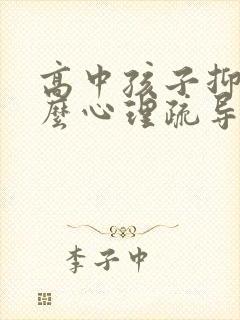 高中孩子抑
麼心理疏导
李子中